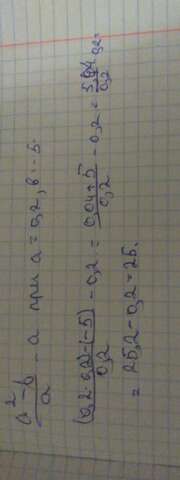 a² - b / a - a при a = 0,2, b = -5.
(0,2 · 0,2) - (-5) / 0,2 - 0,2 = 0,04+5 / 0,2 - 0,2 = 5,04 / 0,2 - 0,2 =
= 25,2 - 0,2 = 25.